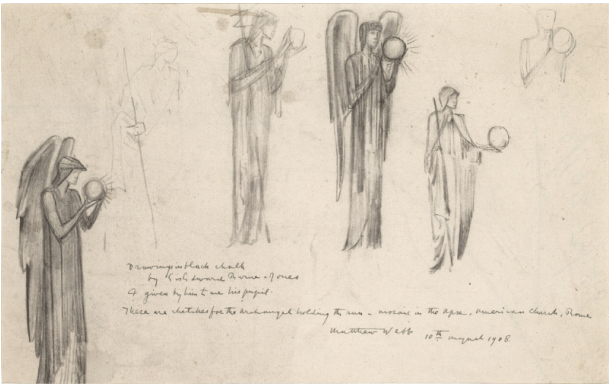 Drawings in black chalk
by Sir Edward Burne-Jones
& given by him to me his pupil.
These are sketches for the archangel holding the sun - mosaic in the apse, American Church, Rome
Matthew Webb 10th August 1908